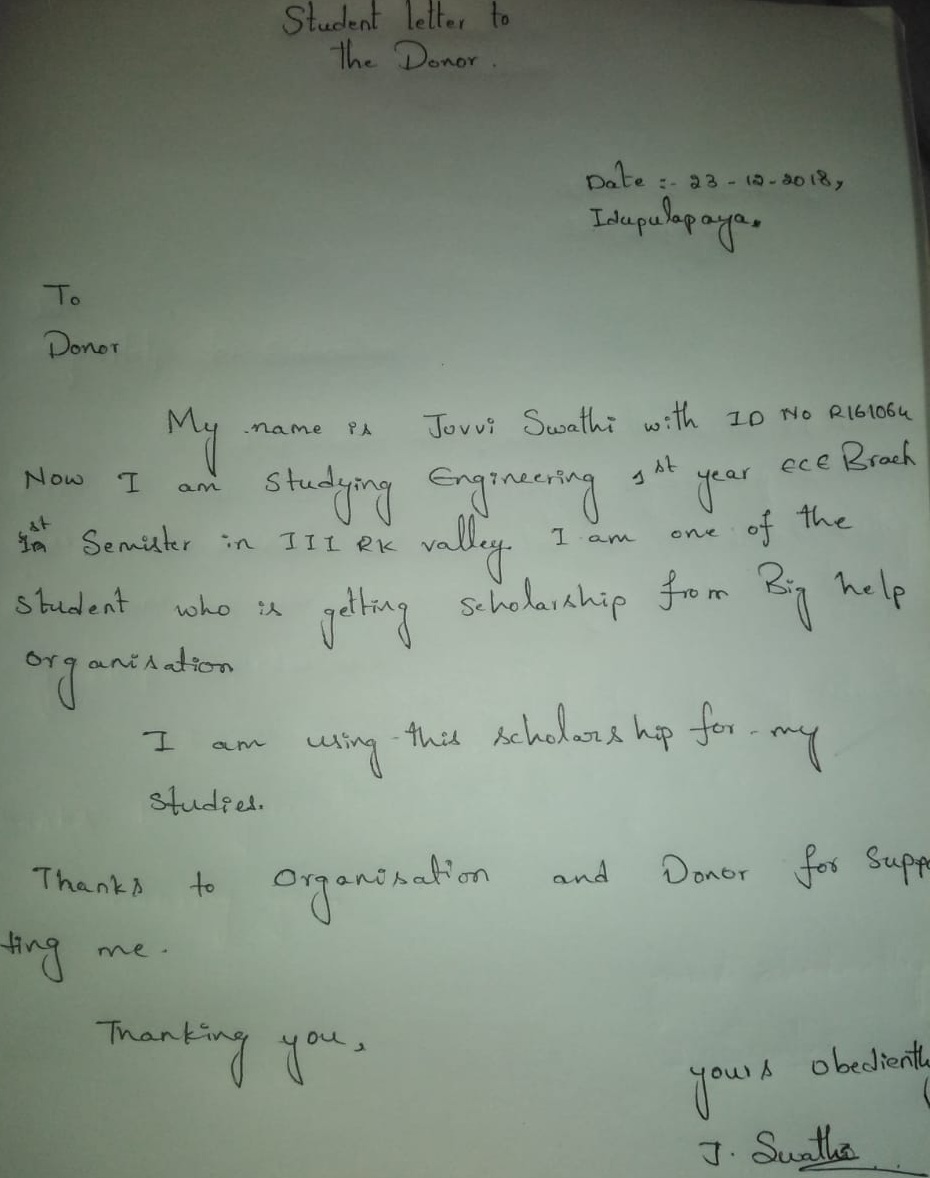 Student letter to
the Donor.
Date :- 23-12-2018,
Idupulapaya.
To
Donor
My name is Juvvi Swathi with ID No R161064
Now I am studying Engineering 1st year ECE Brach
1st Semister in III RK valley. I am one of the
student who is getting scholarship from Big help
organisation
I am using this scholarship for my
studies.
Thanks to Organisation and Donor for Supp
ting me.
Thanking you,
yours obediently
J. Swathi